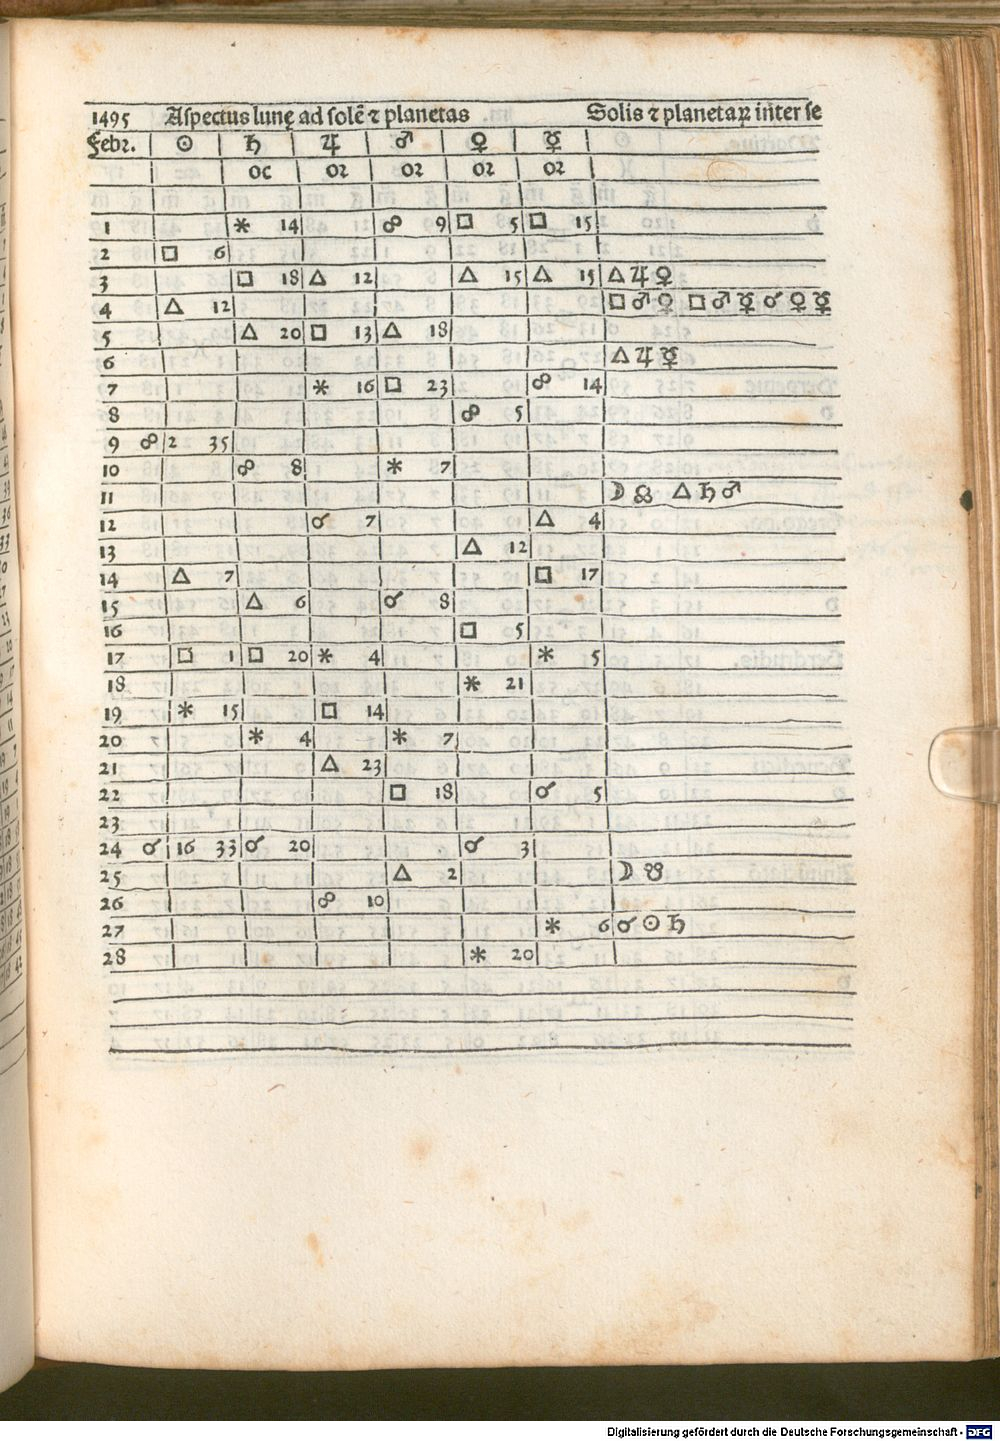 1495 Aspectus lunę ad solē ⁊ planetas Solis ⁊ planetaꝝ inter se
Febr. ☉ ♄ ♃ ♂ ♀ ☿
oc or or or or
1 ⚹ 14 ☍ 9 □ 5 □ 15
2 □ 6
3 □ 18 △ 12 △ 15 △ 15 △ ♃ ♀
4 △ 12 □ ♂ ♀ □ ♂ ☿ ☌ ♀ ☿
5 △ 20 □ 13 △ 18
6 △ ♃ ☿
7 ⚹ 16 □ 23 ☍ 14
8 ☍ 5
9 ☍ 2 35
10 ☍ 8 ⚹ 7
11 ☽ ☊ △ ♄ ♂
12 ☌ 7 △ 4
13 △ 12
14 △ 7 □ 17
15 △ 6 ☌ 8
16 □ 5
17 □ 1 □ 20 ⚹ 4 ⚹ 5
18 ⚹ 21
19 ⚹ 15 □ 14
20 ⚹ 4 ⚹ 7
21 △ 23
22 □ 18 ☌ 5
23
24 ☌ 16 33 ☌ 20 ☌ 3
25 △ 2 ☽ ☋
26 ☍ 10
27 ⚹ 6 ☌ ☉ ♄
28 ⚹ 20
Digitalisierung gefördert durch die Deutsche Forschungsgemeinschaft - DFG